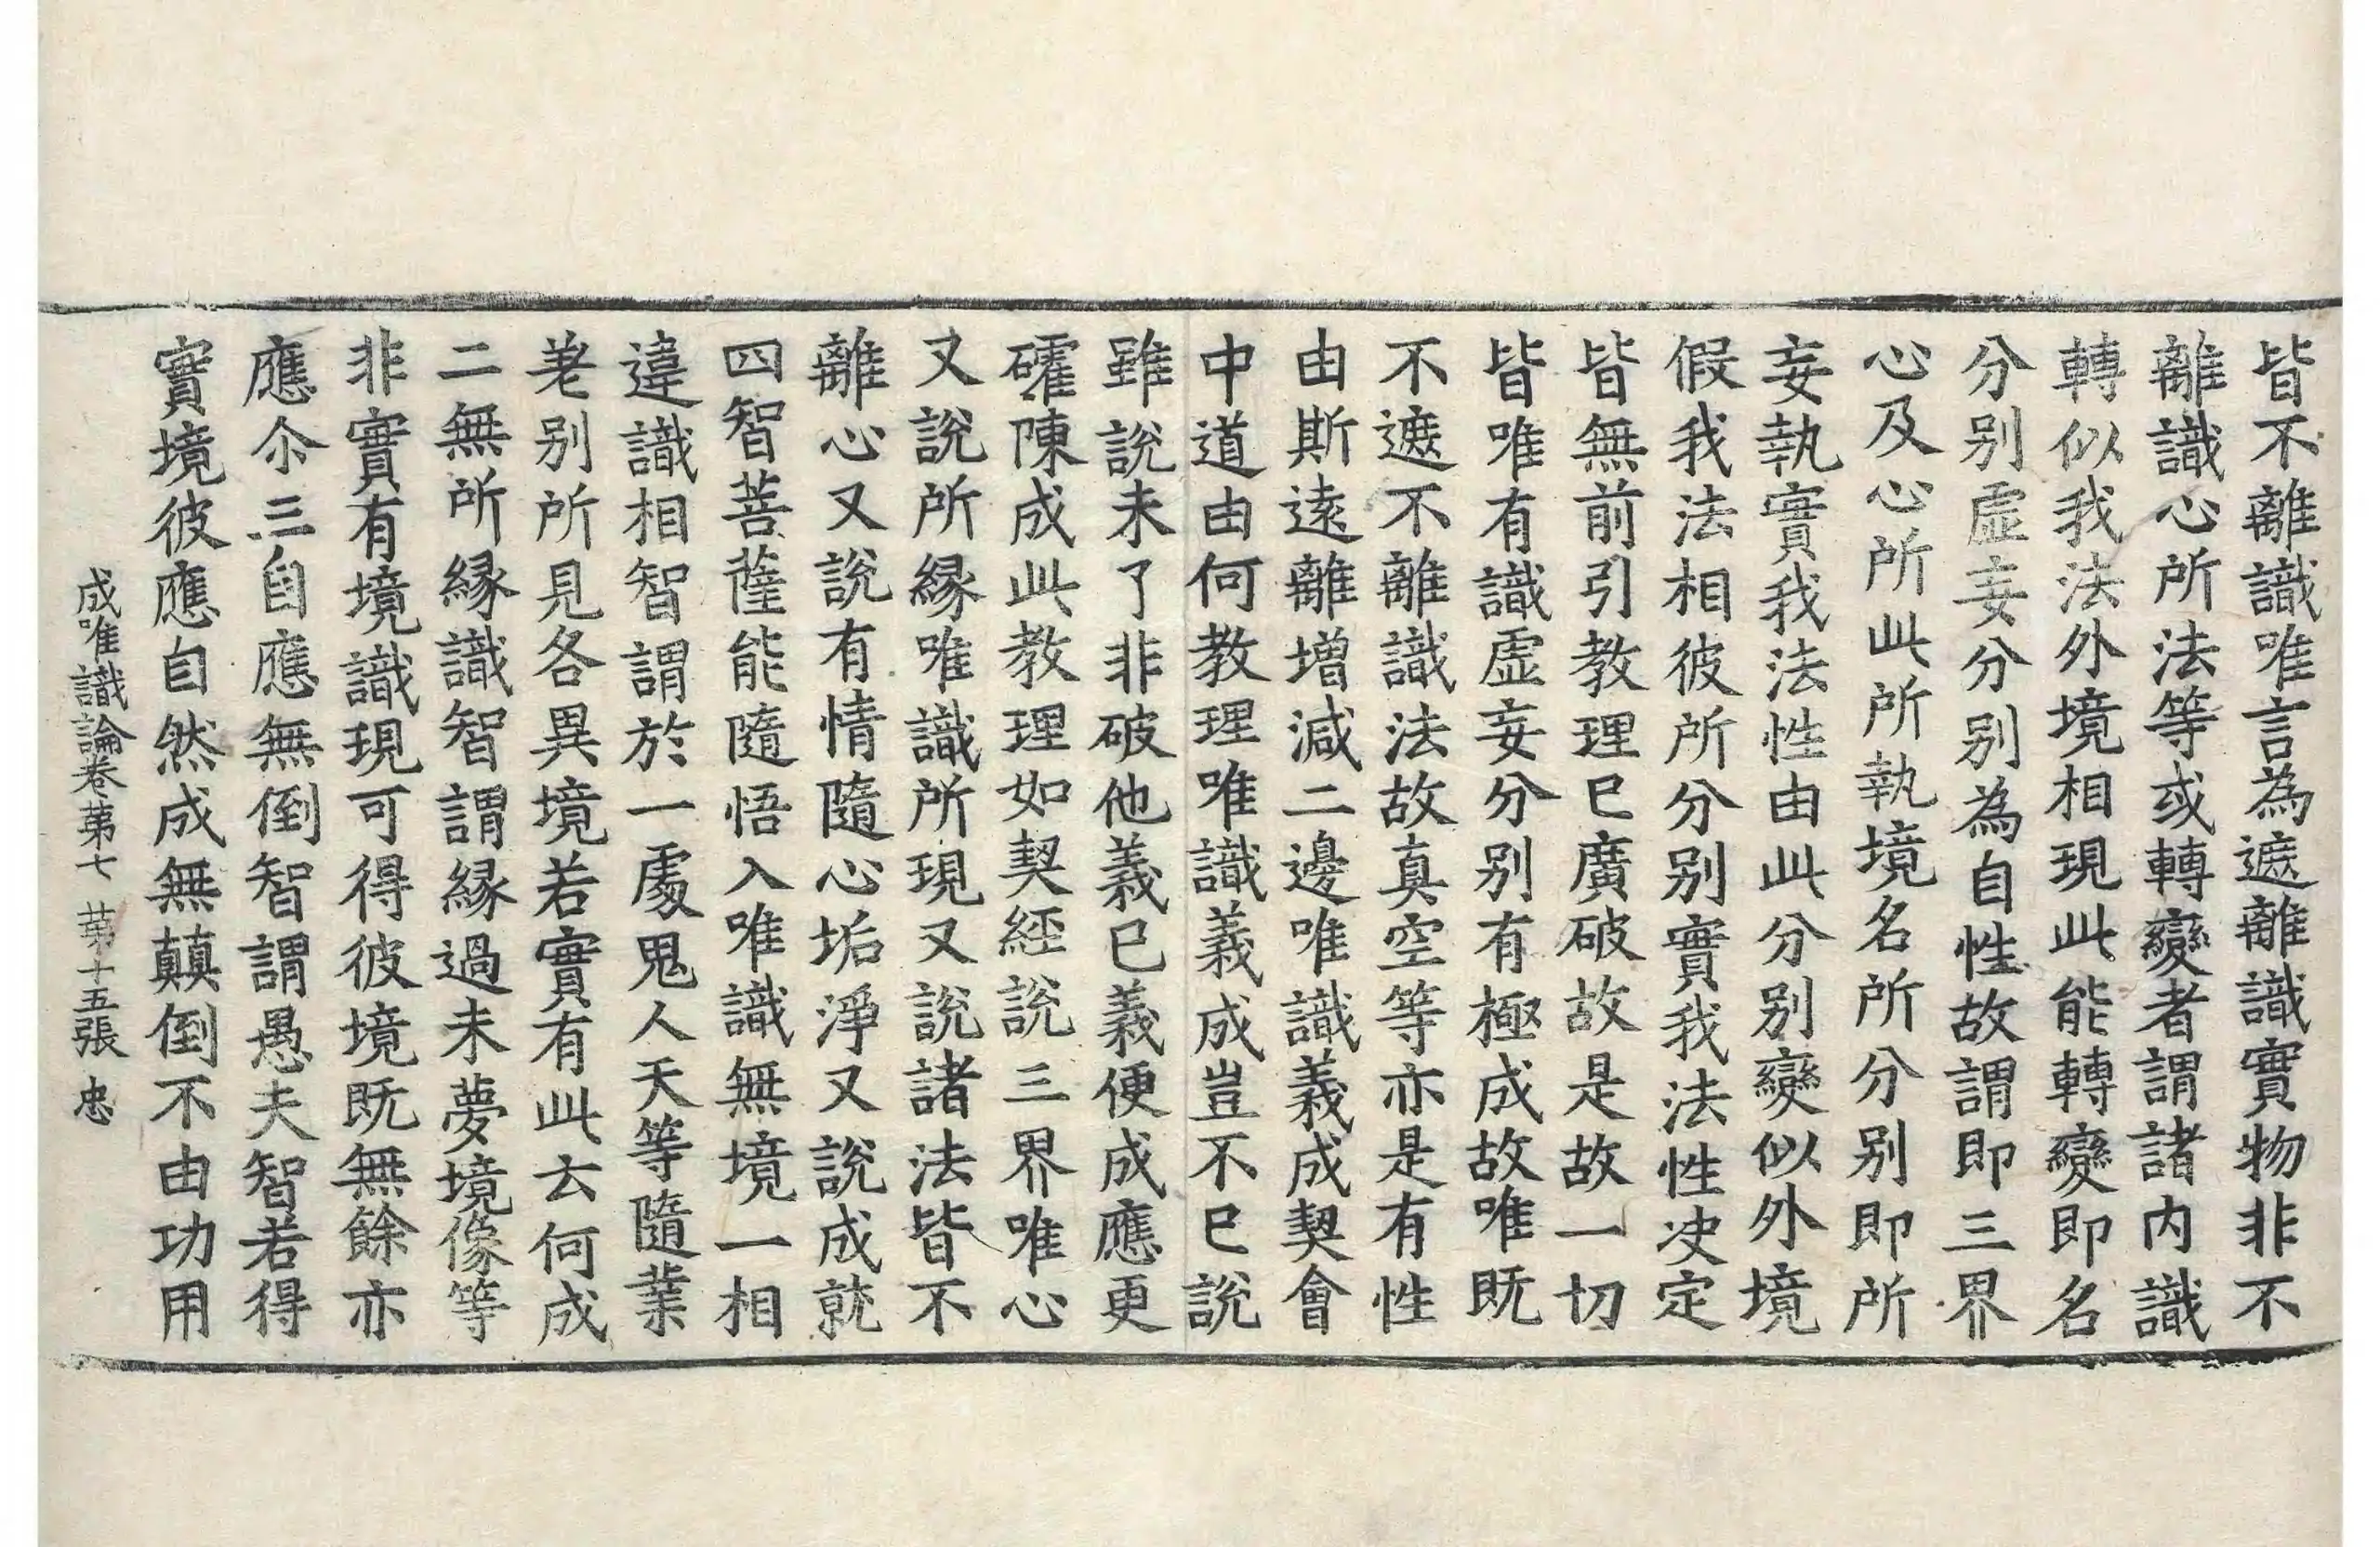 皆不離識唯言為遮離識實物非不
離識心所法等或轉變者謂諸内識
轉似我法外境相現此能轉變即名
分别虛妄分别為自性故謂即三界
心及心所此所執境名所分别即所
妄執實我法性由此分别變似外境
假我法相彼所分别實我法性决定
皆無前引教理已廣破故是故一切
皆唯有識虛妄分别有極成故唯既
不遮不離識法故真空等亦是有性
由斯遠離增減二邊唯識義成契會
中道由何教理唯識義成豈不已說
雖說未了非破他義已義便成應更
確陳成此教理如契經說三界唯心
又說所緣唯識所現又說諸法皆不
離心又說有情隨心垢淨又說成就
四智菩薩能隨悟入唯識無境一相
違識相智謂於一處鬼人天等隨業
差别所見各異境若實有此云何成
二無所緣識智謂緣過未夢境像等
非實有境識現可得彼境既無餘亦
應尒三自應無倒智謂愚夫智若得
實境彼應自然成無顛倒不由功用
成唯識論卷苐七 苐十五張 忠